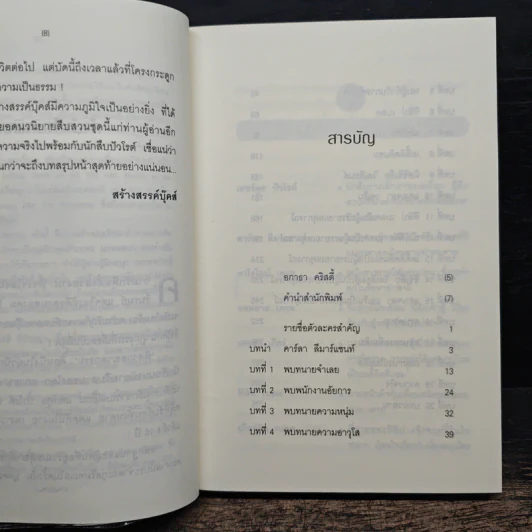 (8)
วิตต่อไป แต่บัดนี้ถึงเวลาแล้วที่โครงกระดูก
ความเป็นธรรม !
างสรรค์บุ๊คส์มีความภูมิใจเป็นอย่างยิ่ง ที่ได้
ยอดนวนิยายสืบสวนชุดนี้แก่ท่านผู้อ่านอีก
ความจริงไปพร้อมกับนักสืบปัวโรต์ เชื่อแน่ว่า
นกว่าจะถึงบทสรุปหน้าสุดท้ายอย่างแน่นอน...
สร้างสรรค์บุ๊คส์
สารบัญ
อกาธา คริสตี้ (5)
คำนำสำนักพิมพ์ (7)
รายชื่อตัวละครสำคัญ 1
บทนำ คาร์ลา ลีมาร์แชนท์ 3
บทที่ 1 พบทนายจำเลย 13
บทที่ 2 พบพนักงานอัยการ 24
บทที่ 3 พบทนายความหนุ่ม 32
บทที่ 4 พบทนายความอาวุโส 39